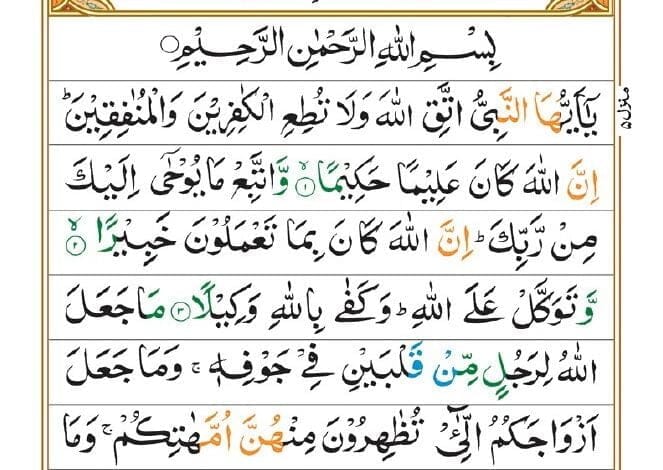 بِسْمِ اللهِ الرَّحْمٰنِ الرَّحِيْمِ
يٰۤاَيُّهَا النَّبِىُّ اتَّقِ اللهَ وَلَا تُطِعِ الْكٰفِرِيْنَ وَالْمُنٰفِقِيْنَ ؕ
اِنَّ اللهَ كَانَ عَلِيْمًا حَكِيْمًا ۙ‏﴿۱﴾ وَّاتَّبِعْ مَا يُوْحٰۤى اِلَيْكَ
مِنْ رَّبِّكَ ؕ اِنَّ اللهَ كَانَ بِمَا تَعْمَلُوْنَ خَبِيْرًا ۙ‏﴿۲﴾
وَّتَوَكَّلْ عَلَى اللهِ ؕ وَكَفٰى بِاللهِ وَكِيْلًا ﴿۳﴾ مَا جَعَلَ
اللهُ لِرَجُلٍ مِّنْ قَلْبَيْنِ فِىْ جَوْفِهٖ ۚ وَمَا جَعَلَ
اَزْوَاجَكُمُ الّٰٓـئِْ تُظٰهِرُوْنَ مِنْهُنَّ اُمَّهٰتِكُمْ ۚ وَمَا
منزل ۵